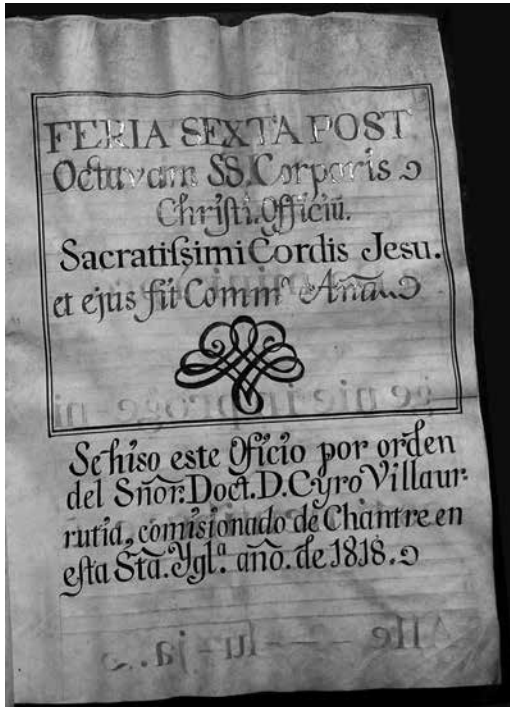 FERIA SEXTA POST
Octavam SS. Corporis
Chriſti. Officiū.
Sacratiſsimi Cordis Jesu.
et ejus fit Comm.
Se hiso este Oficio por orden
del Sñor. Doct. D. Cyro Villaur-
rutia, comisionado de Chantre en
eſta Sta. Ygl.ª año. de 1818.
Alle - - - lu - ja.